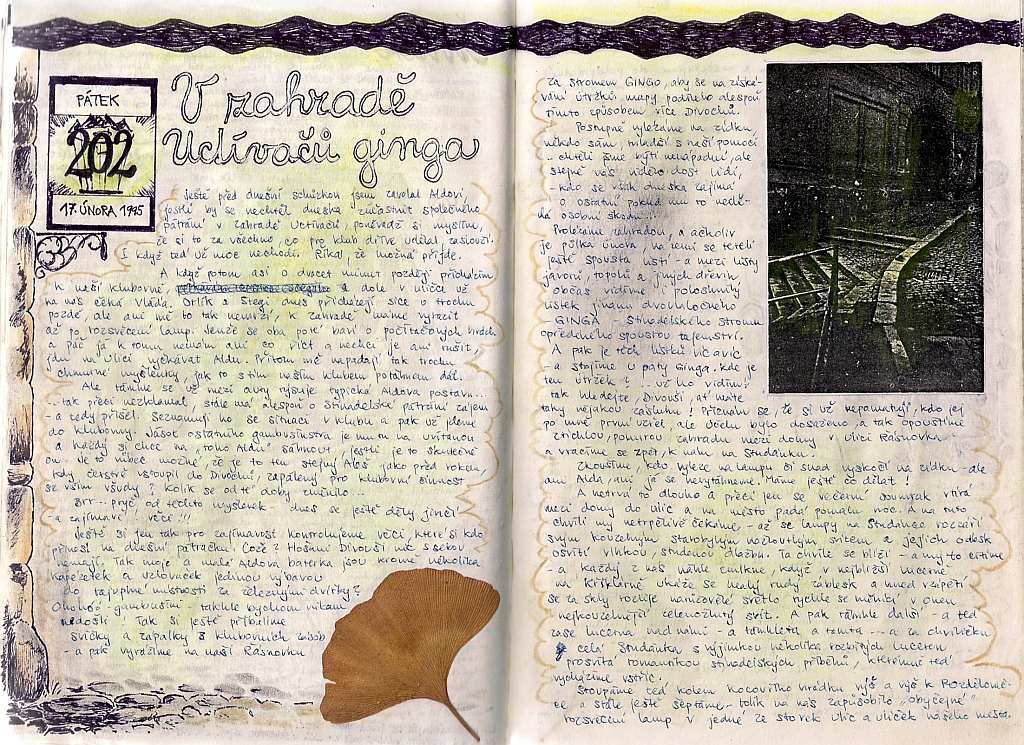 PÁTEK
202
17. ÚNORA 1995
V zahradě
Uctívačů ginga
Ještě před dnešní schůzkou jsem zavolal Aldovi,
jestli by se nechtěl dneska zúčastnit společného
pátrání v zahradě Uctívačů, poněvadž si myslím,
že si to za všechno, co pro klub dříve udělal zaslouží.
I když teď už moc nechodí. Říkal, že možná přijde.
A když potom asi o dvacet minut později přicházím
k naší klubovně, a dole v uličce už
na nás čeká Vláďa. Orlík a Stegi dnes přicházejí sice o trochu
pozdě, ale ani mě to tak nemrzí, k zahradě máme vyrazit
až po rozsvěcení lamp. Jenže se oba poté baví o počítačových hrách
a páč já k tomu nemám ani co říct a nechci je ani rušit,
jdu na ulici vyčkávat Aldu. Přitom mě napadají tak trochu
chmurné myšlenky, jak to s tím naším klubem potáhnem dál.
Ale támhle se už mezi auty rýsuje typická Aldova postava...
... tak přeci nezklamal, stále má alespoň o Stínadelské pátrání zájem
- a tedy přišel. Seznamuji ho se situací v klubu a pak už jdeme
do klubovny. Jásot ostatního gambusinstva je nutný na uvítanou
a každý si chce na "toho Aldu" sáhnout, jestli je to skutečně
on. Je to vůbec možné, že je to ten stejný Aleš jako před rokem,
kdy čerstvě vstoupil do Divochů, zapálený pro klubovní činnost
se vším všudy? Kolik se od té doby změnilo...
Brr - pryč od těchto myšlenek - dnes se ještě děly jiné
a zajímavé věci!!!
Ještě si jen tak pro zajímavost kontrolujeme věci, které si kdo
přinesl na dnešní pátračku. Cože? Hošani Divouši nic s sebou
nemají. Tak moje a malá Aldova baterka jsou kromě několika
kapezetek a uzlovaček jedinou výbavou
do tajuplné místnosti za železnými dvířky?
Ohoho - gambusíni takhle bychom nikam
nedošli. Tak si ještě přibalíme
svíčky a zápalky z klubovních zásob
- a pak vyrážíme na naši Rásnovku
za stromem GINGO, aby se na získá-
vání útržků mapy podílelo alespoň
tímto způsobem více Divochů.
Postupně vylézáme na zídku,
někdo sám, mladší s naší pomocí
... chtěli jsme býti nenápadní, ale
stejně nás vidělo dost lidí,
- kdo se však dneska zajímá
o ostatní pokud mu to nedě-
lá osobní škodu...
Prolézáme zahradou, a ačkoliv
je půlka února, na zemi se tetelí
ještě spousta listí - a mezi listy
javorů, topolů a jiných dřevin
občas vidíme i poloshnilý
lístek jinanu dvoulaločného
GINGA - Stínadelského stromu
opředeného spoustou tajemství.
A pak je těch lístků víc a víc
- a stojíme u paty Ginga. Kde je
ten útržek? ... už ho vidím!
Tak hledejte, Divouši, ať máte
taky nějakou zásluhu! Přiznám se, že si už nepamatuji, kdo jej
po mně první uzřel, ale účelu bylo dosaženo, a tak opouštíme
ztichlou, ponurou zahradu mezi domy v ulici Rásnovka
- a vracíme se zpět, k nám na Studánku!
Zkoušíme, kdo vyleze na lampu či snad vyskočí na zídku - ale
ani Alda, ani já se nevytáhneme. Máme ještě co dělat!
A netrvá to dlouho a přeci jen se večerní soumrak vtírá
mezi domy do ulic a na město padá pomalu noc. A na tuto
chvíli my netrpělivě čekáme - až se lampy na Studánce rozzáří
svým kouzelným starobylým nažloutlým svitem a jejich odlesk
osvítí vlhkou, studenou dlažbu. Ta chvíle se blíží - a my to cítíme
- a každý z nás náhle zmlkne, když v nejbližší lucerně
na Křiklárně ukáže se malý rudý záblesk a hned vzápětí
se za skly rozlije narůžovělé světlo rychle se měnící v onen
nejkouzelnější zelenožlutý svit. A pak támhle další - a teď
zase lucerna nad námi - a támhleta a tamta ... a za chviličku
celá Studánka s výjimkou několika rozbitých luceren
prosvítá romantikou stínadelských příběhů, kterému teď
vycházíme vstříc.
Stoupáme teď kolem Kocovitho vrádku výš a výš k Rozdělovač-
ce a stále ještě šeptáme - tolik na nás zapůsobilo "obyčejné"
rozsvěcení lamp v jedné ze stovek ulic a uliček našeho města.